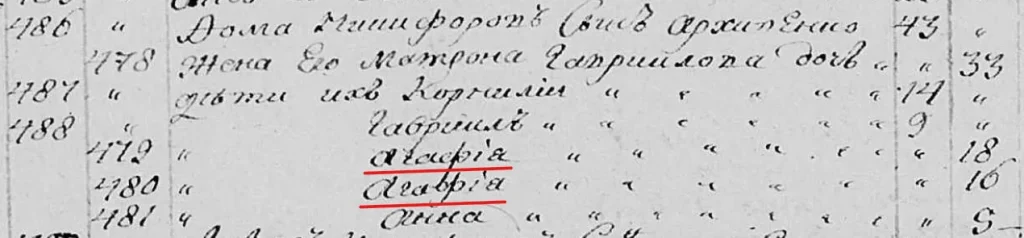 486 " Ѳома Никифоровъ Сынъ Архипенко 43 "
478 Жена Его Матрона Гавриилова дочь " " 33
487 " дѣти ихъ Корнилій " " " " " 14 "
488 " Гавриилъ " " " " " " 9 "
479 " Агафіа " " " " " " " 18
480 " Агавріа " " " " " " " 16
481 " Анна " " " " " " "